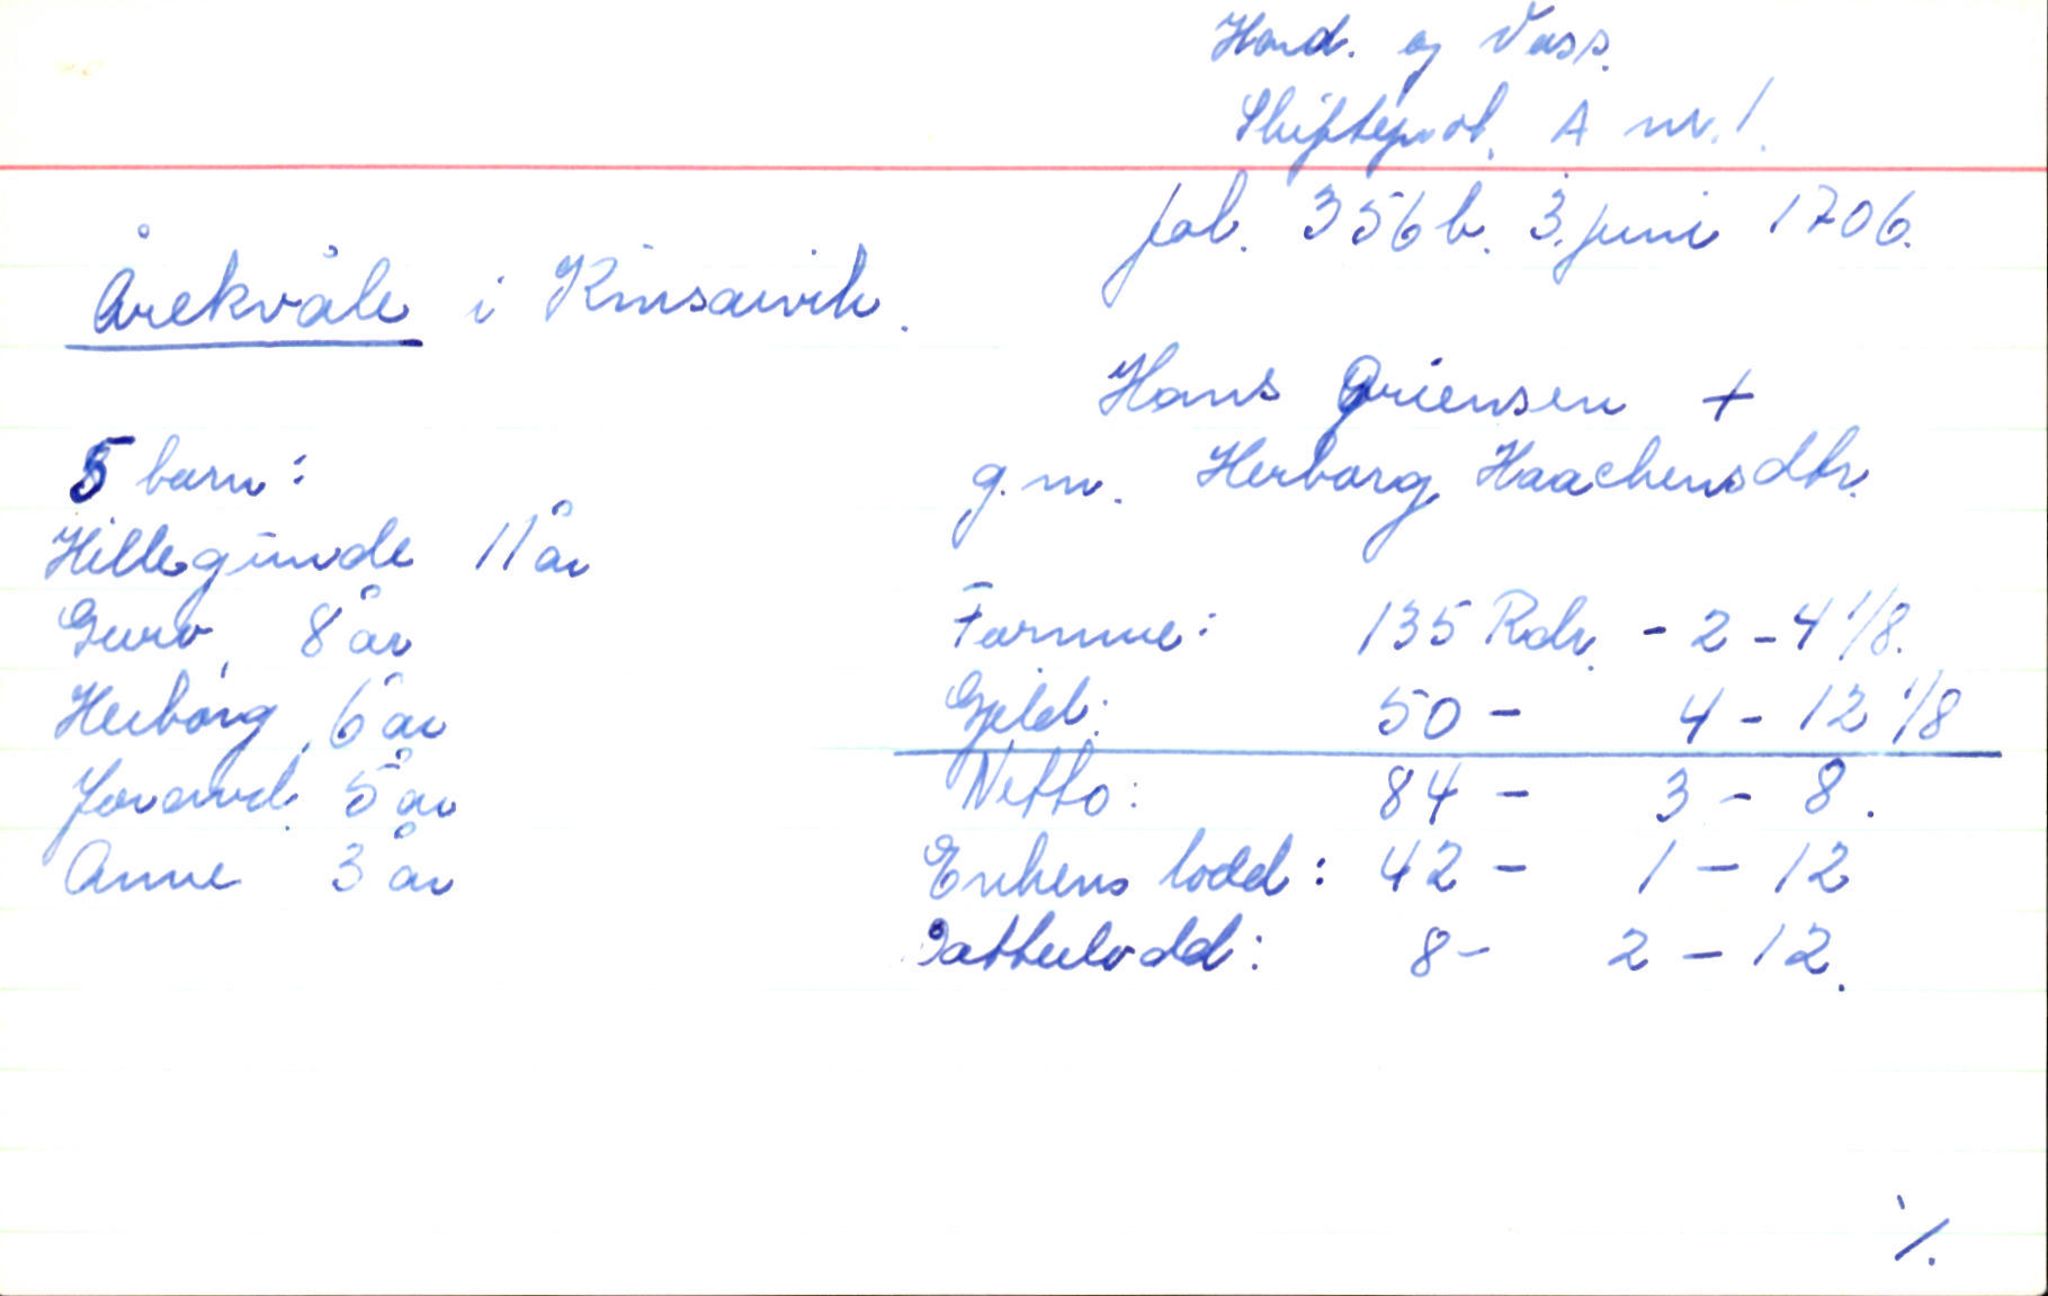 Hard. og Voss.
Skifteprot. A nr. 1.
fol. 356b. 3. juni 1706.
Årekvåle i Kinsarvik.
Hans Ориensen +
g.m. Herborg Haachensdtr.
5 barn:
Hillegunde 11 år
Guro, 8 år
Herborg, 6 år
Joravd. 5 år
Anne 3 år
Formue: 135 Rdr. - 2 - 4 1/8.
Gjeld: 50 - 4 - 12 1/8
Netto: 84 - 3 - 8.
Enkens lodd: 42 - 1 - 12
Datterlodd: 8 - 2 - 12.
./.